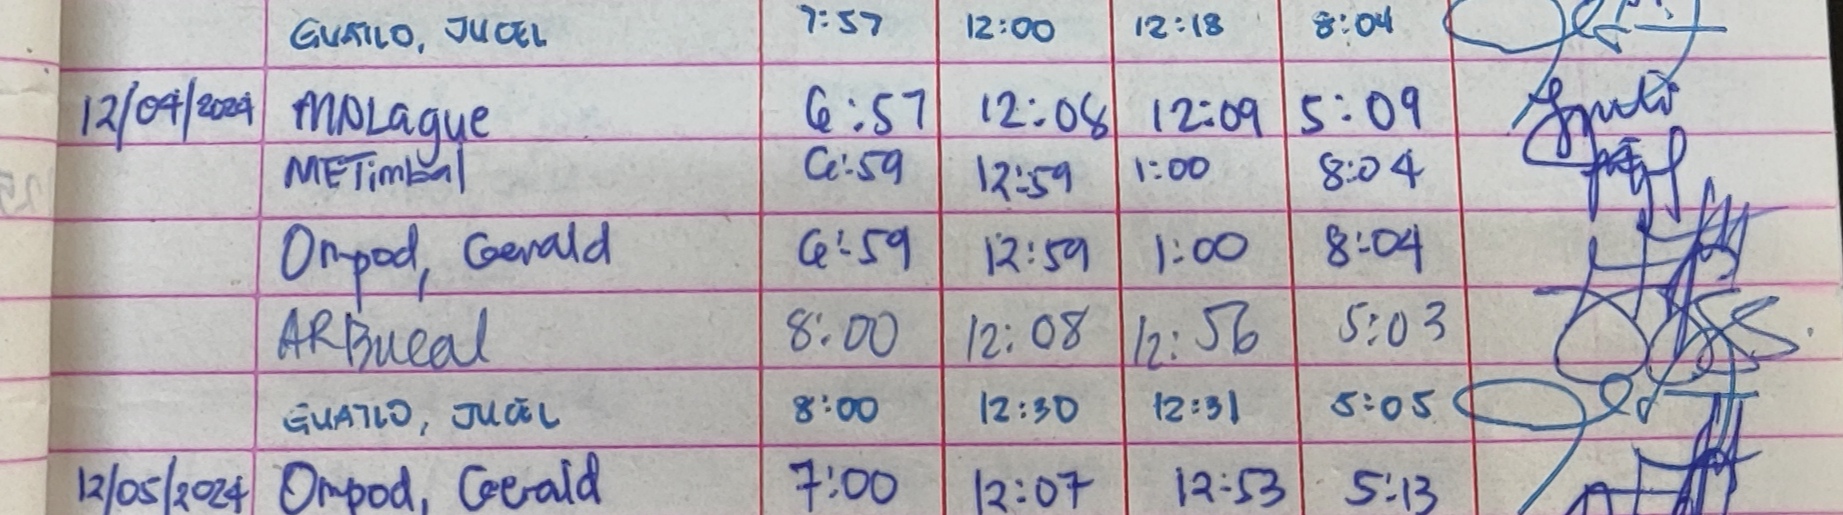 GUATLO, JUCEL 7:57 12:00 12:18 8:04
12/04/2024 MNLague 6:57 12:08 12:09 5:09
METimbal 6:59 12:59 1:00 8:04
Ompod, Gerald 6:59 12:59 1:00 8:04
ARBueal 8:00 12:08 12:56 5:03
GUATLO, JUCEL 8:00 12:30 12:31 5:05
12/05/2024 Ompod, Gerald 7:00 12:07 12:53 5:13